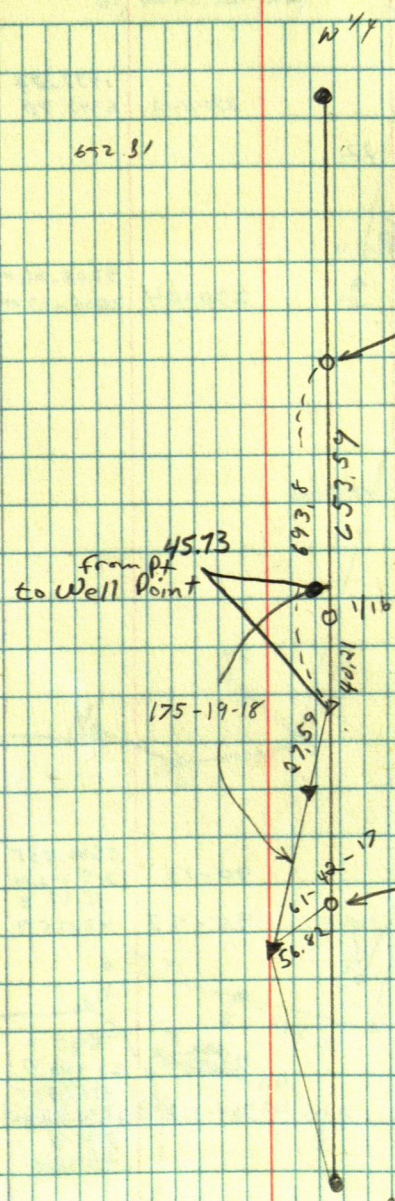 W 1/4
652.81
693.8
653.59
45.73
from pt
to Well Point
1/16
40.21
175-19-18
27.59
61-42-17
56.82